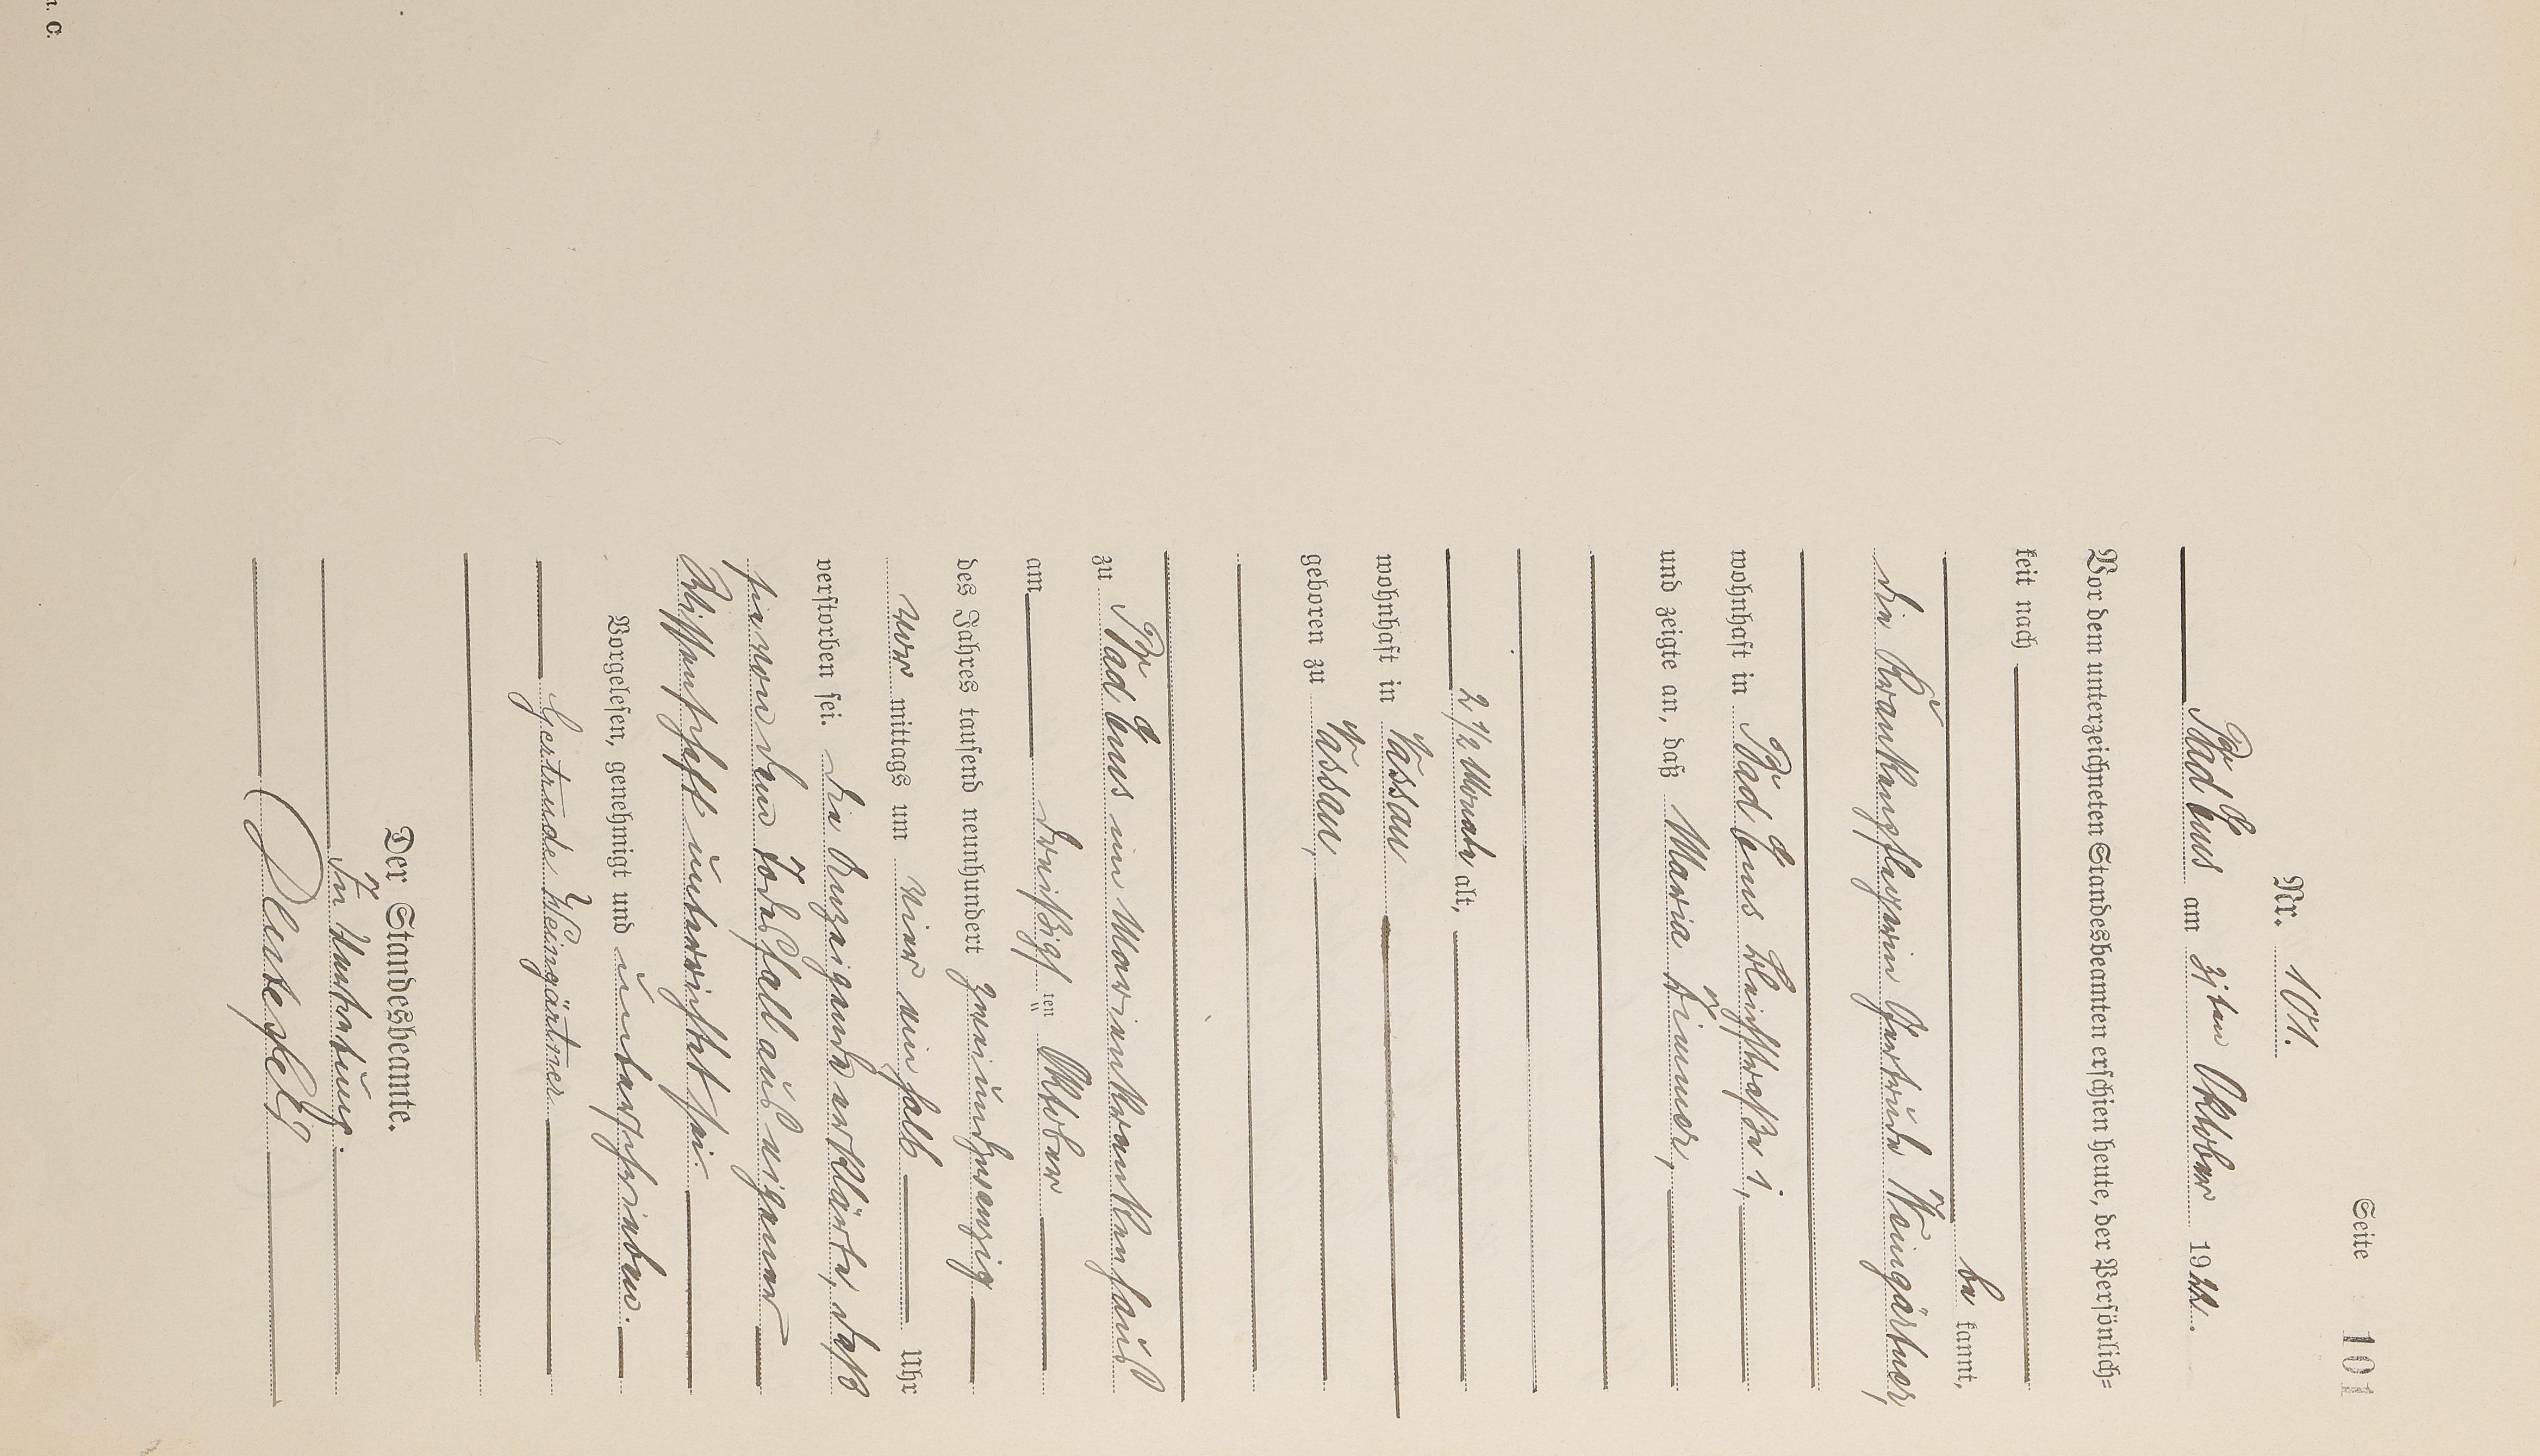 n. C.
Seite 101
Nr. 101.
Bad Ems am 31ten Oktober 1922.
Vor dem unterzeichneten Standesbeamten erschien heute, der Persönlich=
keit nach
be kannt,
die Krankenpflegerin Gertrude Weingärtner,
wohnhaft in Bad Ems Bleichstraße 1,
und zeigte an, daß Maria
2 1/2 Monate alt,
wohnhaft in Nassau
geboren zu Nassau,
zu Bad Ems im Marienkrankenhaus
am dreißigs ten Oktober
des Jahres tausend neunhundert zweiundzwanzig
vor mittags um vier ein halb Uhr
verstorben sei. Die Anzeigende erklärte, daß
sie von dem Todesfall aus eigener
Wissenschaft unterrichtet sei.
Vorgelesen, genehmigt und unterschrieben.
Gertrude Weingärtner
Der Standesbeamte.
In Vertretung.